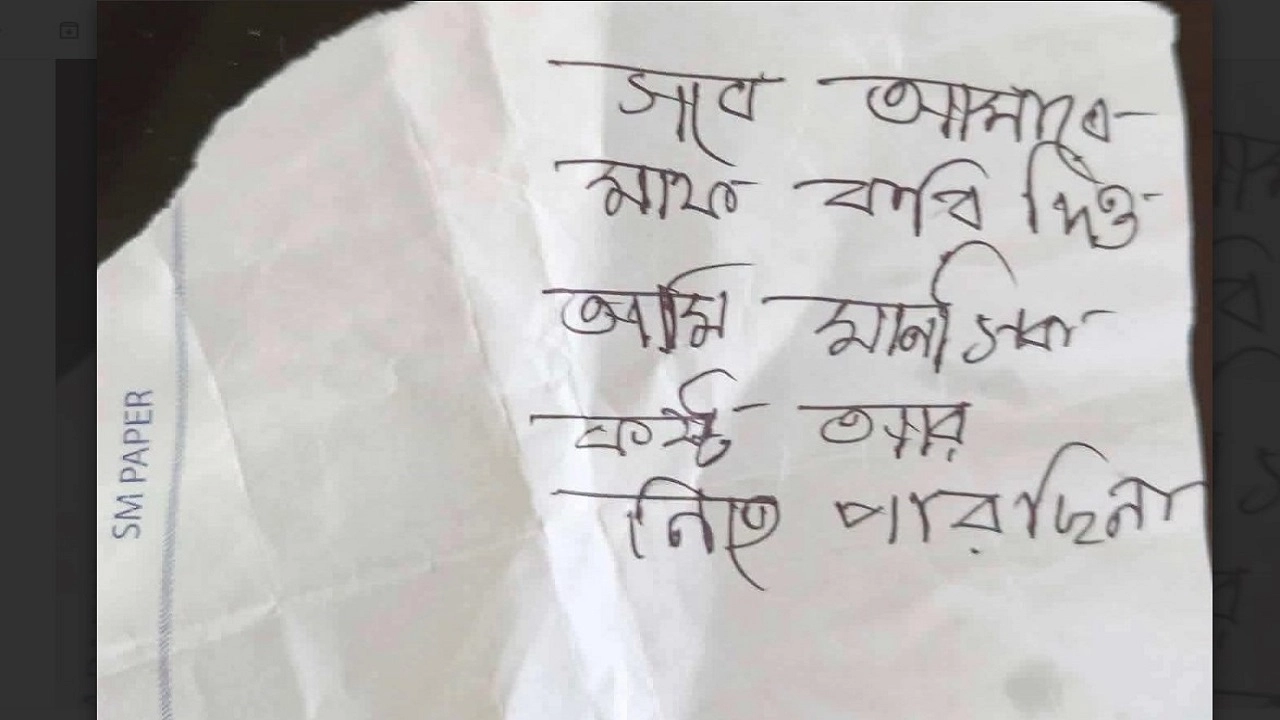 সবে আমারে
মাফ করি দিও
আমি মানসিক
কষ্ট আর
নিতে পারছিনা
SM PAPER